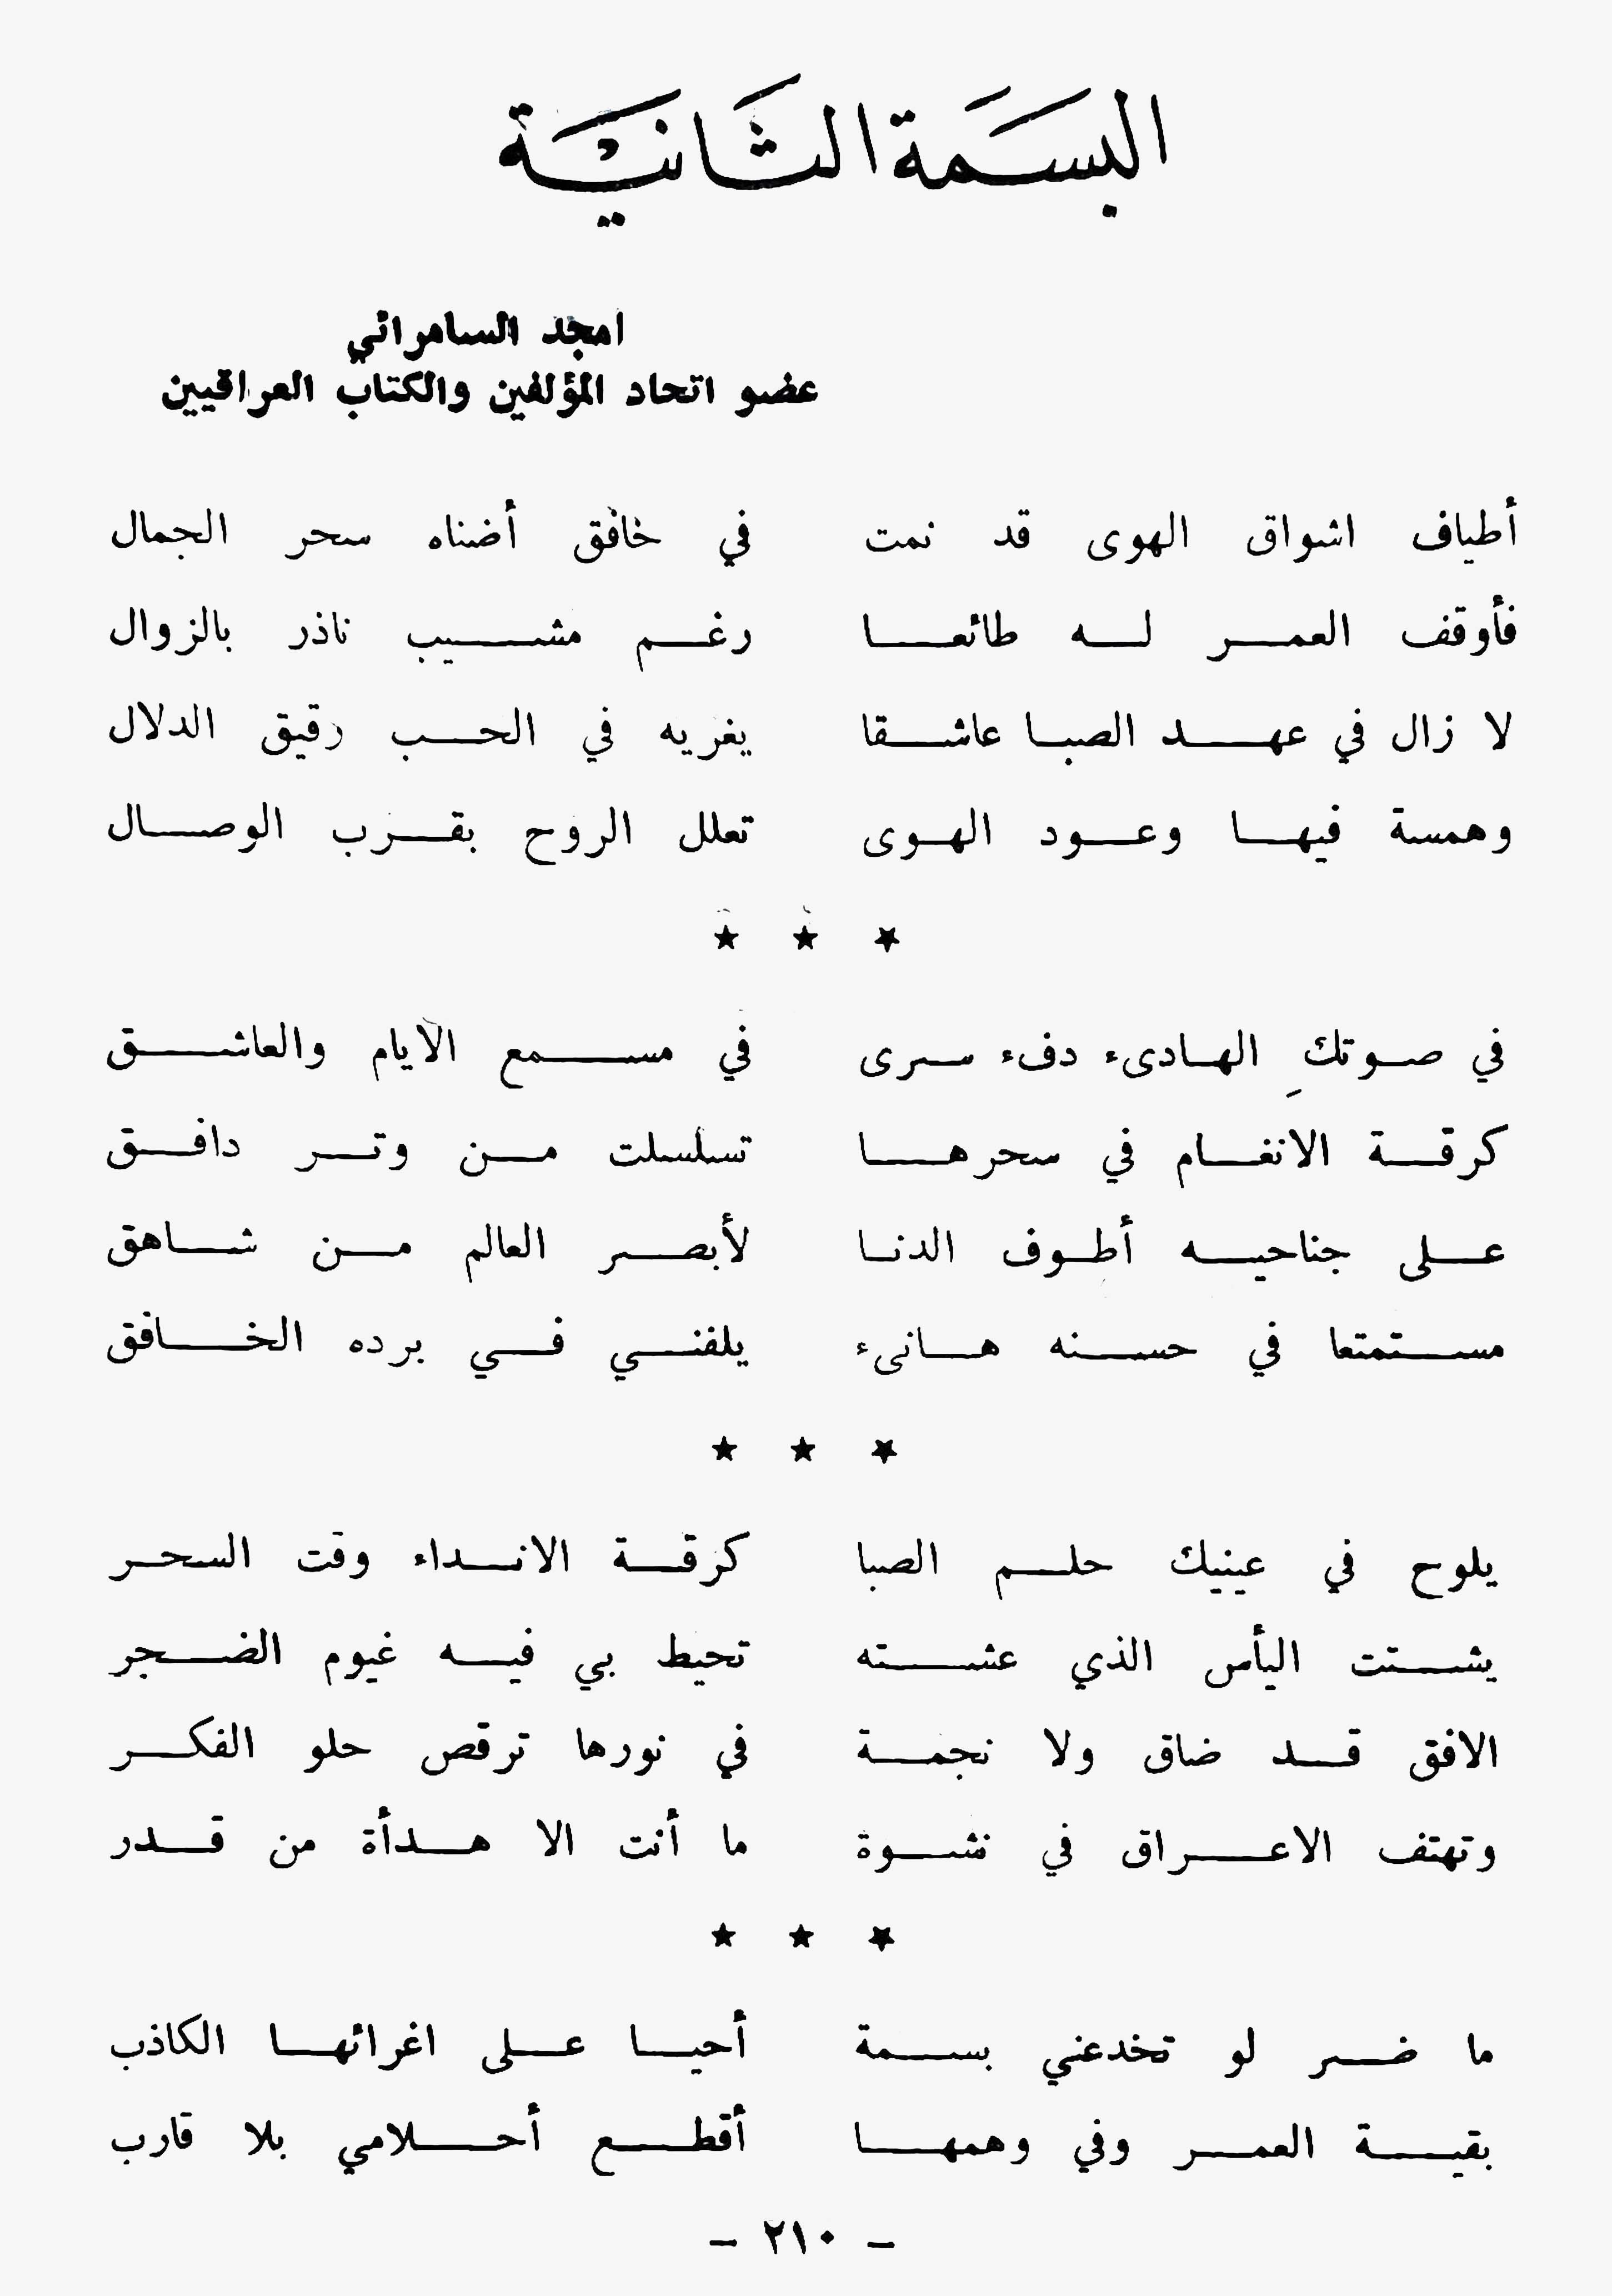 البسمة الثانية
امجد السامرائي
عضو اتحاد المؤلفين والكتاب العراقيين
أطياف اشواق الهوى قد نمت في خافق أضناه سحر الجمال
فأوقف العمر له طائعا رغم مشيب ناذر بالزوال
لا زال في عهد الصبا عاشقا يغريه في الحب رقيق الدلال
وهمسة فيها وعود الهوى تعلل الروح بقرب الوصال
★ ★ ★
في صوتكِ الهادىء دفء سرى في مسمع الايام والعاشق
كرقة الانغام في سحرها تسلسلت من وتر دافق
على جناحيه أطوف الدنا لأبصر العالم من شاهق
مستمتعا في حسنه هانىء يلفني في برده الخافق
★ ★ ★
يلوح في عينيك حلم الصبا كرقة الانداء وقت السحر
يشتت اليأس الذي عشته تحيط بي فيه غيوم الضجر
الافق قد ضاق ولا نجمة في نورها ترقص حلو الفكر
وتهتف الاعراق في نشوة ما أنت الا هدأة من قدر
★ ★ ★
ما ضر لو تخدعني بسمة أحيا على اغرائها الكاذب
بقية العمر وفي وهمها أقطع أحلامي بلا قارب
- ٢١٠ -